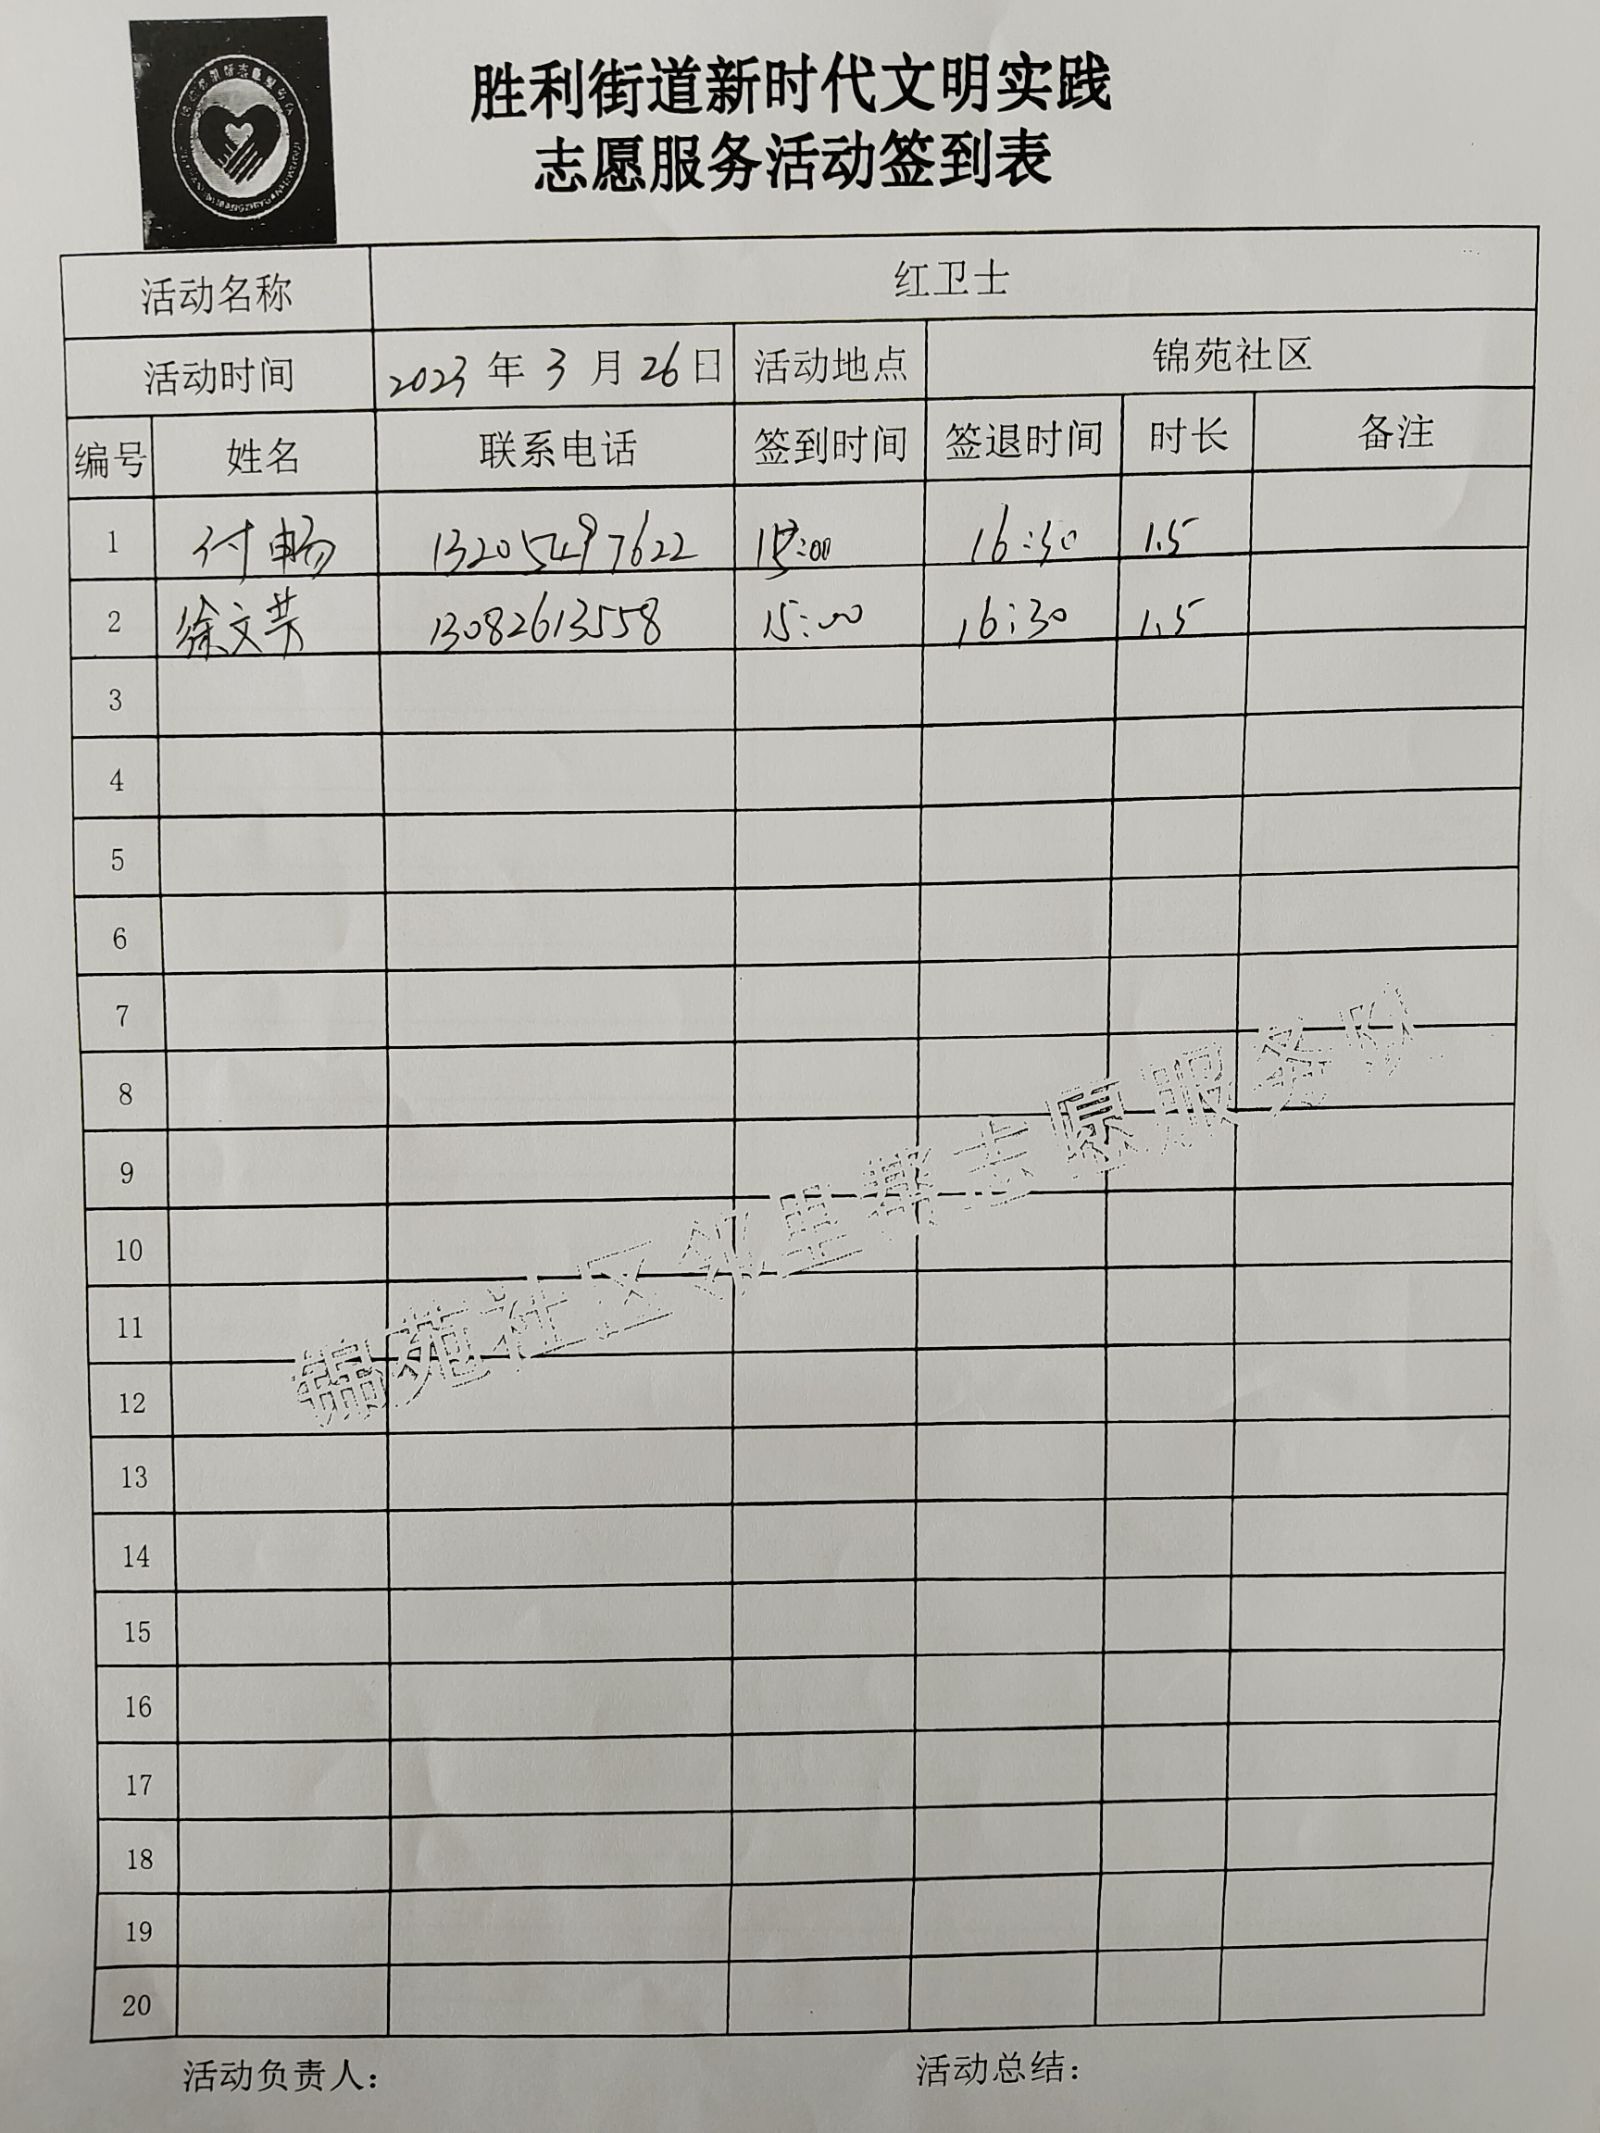 胜利街道新时代文明实践
志愿服务活动签到表
活动名称 红卫士
活动时间 2023年3月26日 活动地点 锦苑社区
编号 姓名 联系电话 签到时间 签退时间 时长 备注
1 付畅 13205497622 15:00 16:30 1.5
2 徐文芳 13082613558 15:00 16:30 1.5
3
4
5
6
7
8
9
10
11
12
13
14
15
16
17
18
19
20
锦苑社区邻里帮志愿服务队
活动负责人: 活动总结: